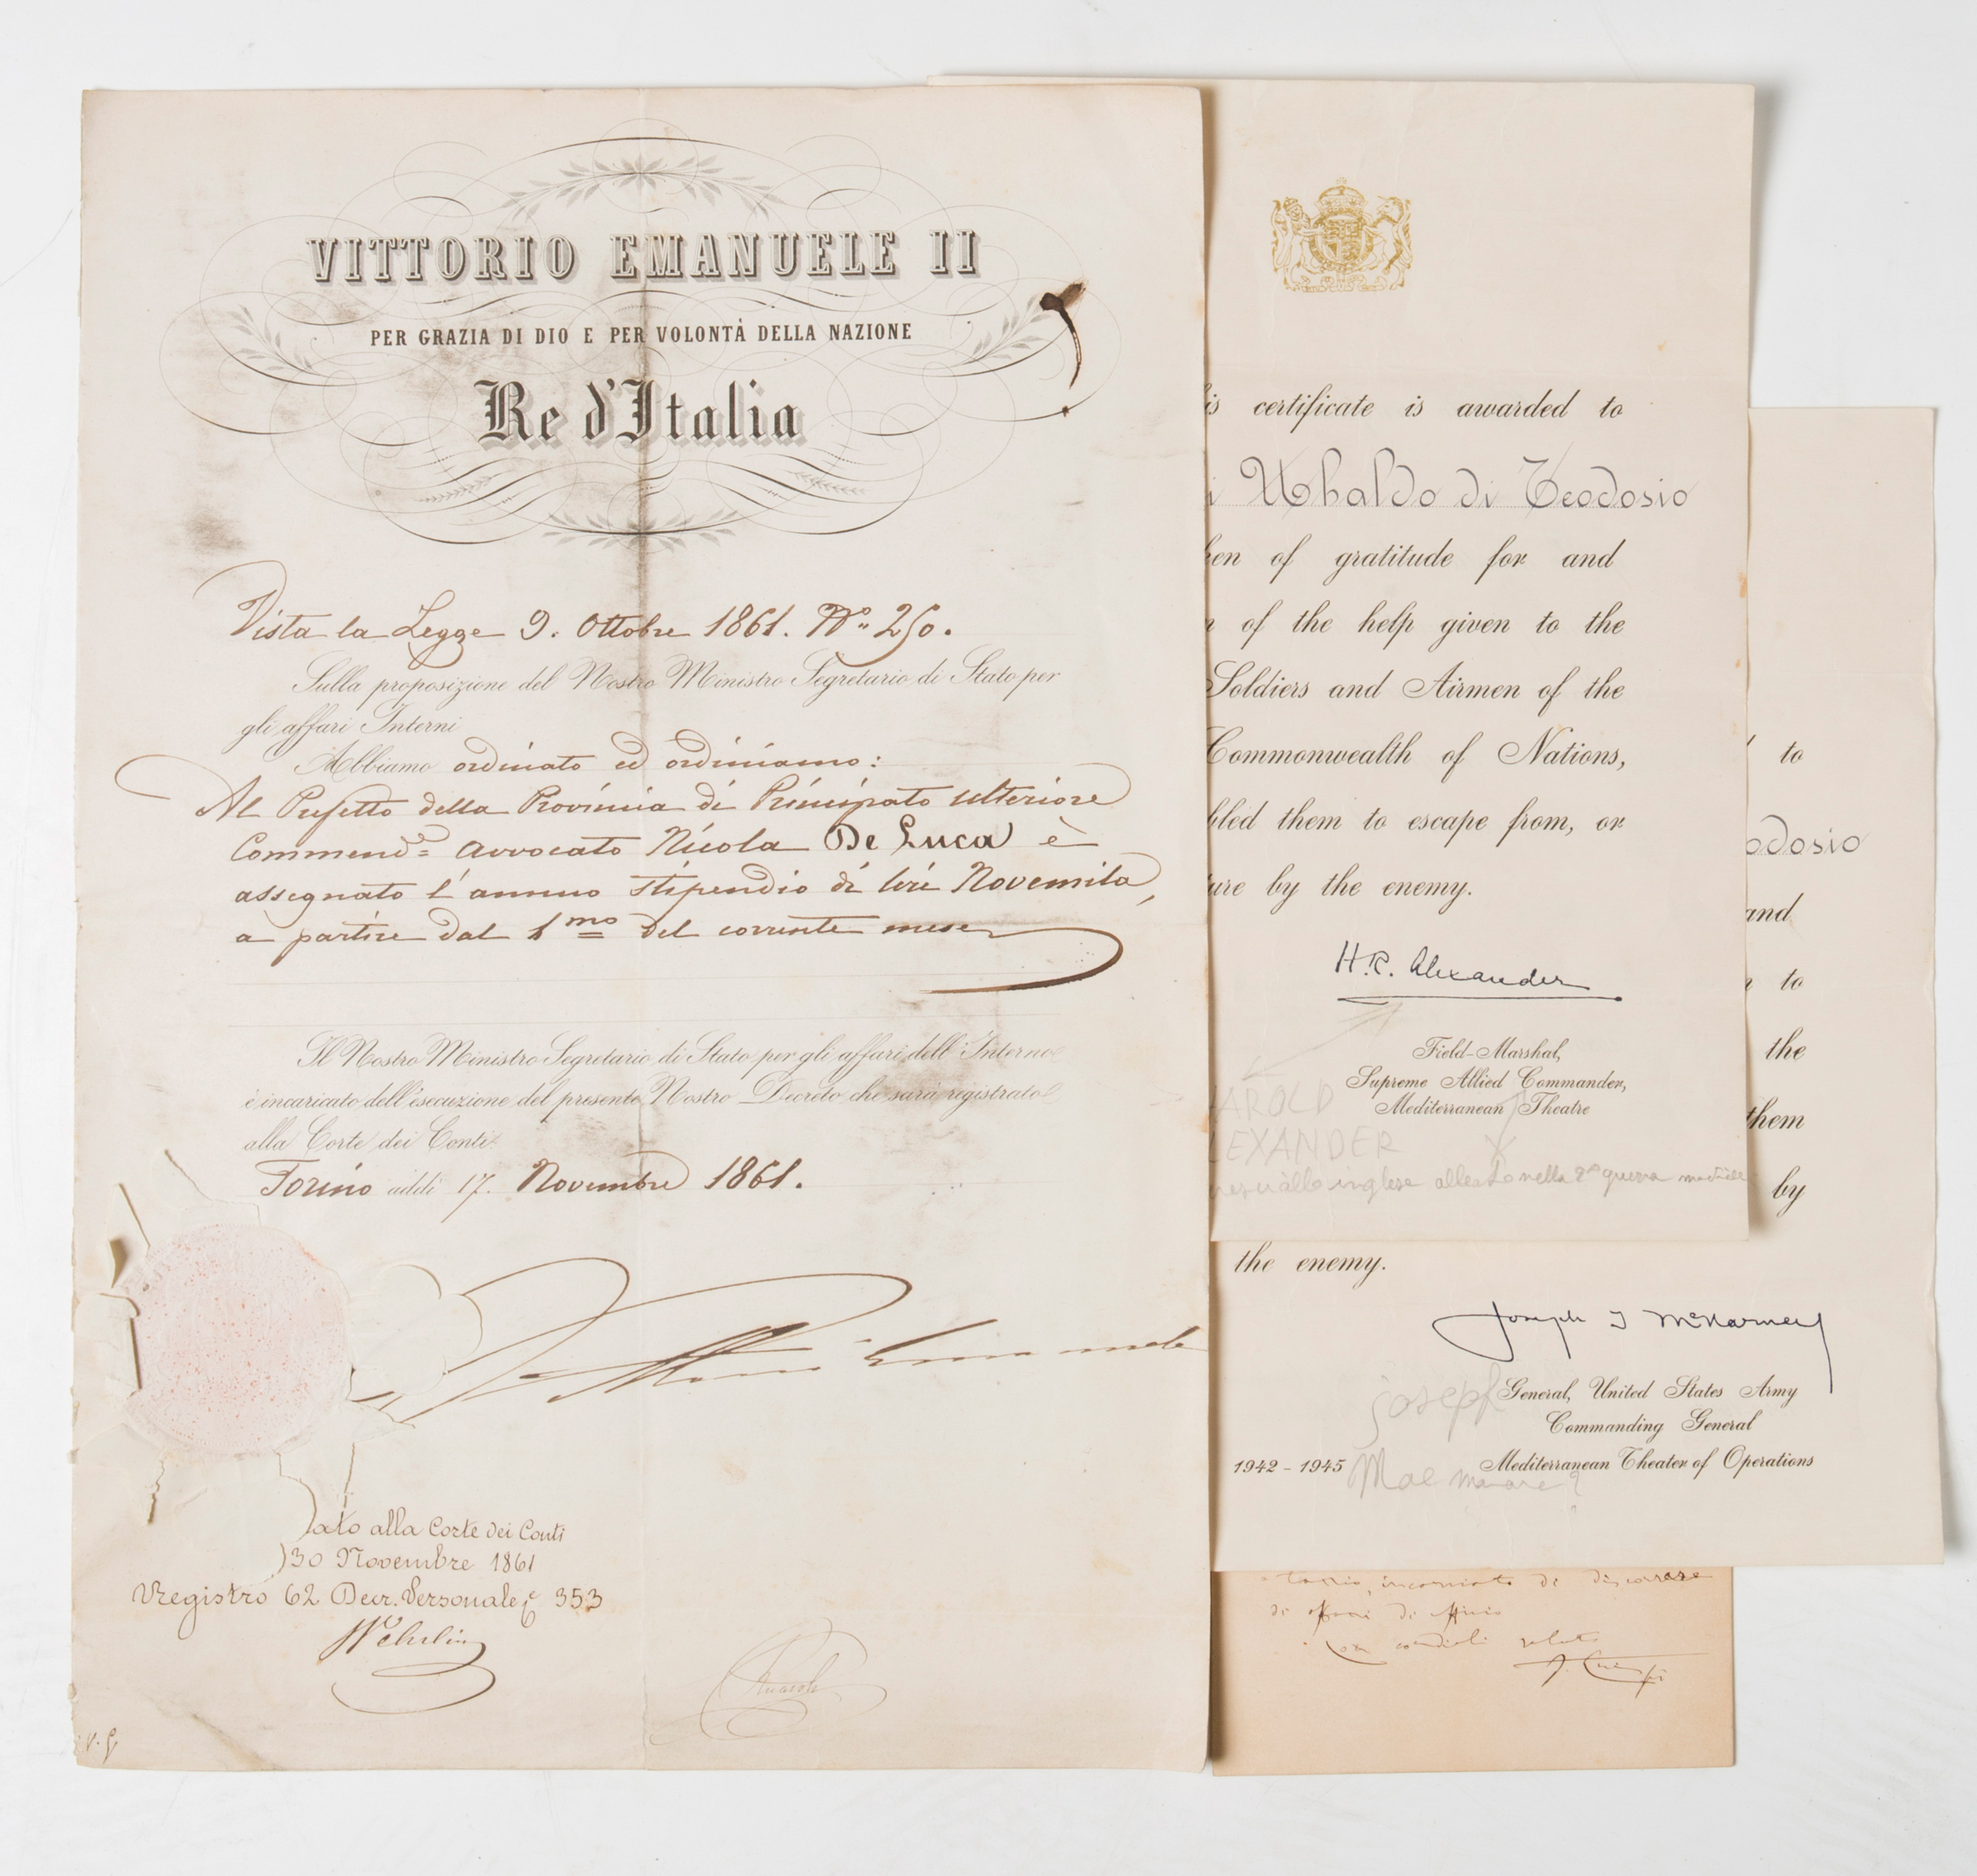 VITTORIO EMANUELE II
PER GRAZIA DI DIO E PER VOLONTÀ DELLA NAZIONE
Re d'Italia
Vista la Legge 9. Ottobre 1861. Nº 250.
Sulla proposizione del Nostro Ministro Segretario di Stato per
gli affari Interni
Abbiamo ordinato ed ordiniamo:
Al Prefetto della Provincia di Principato Ulteriore
Commend.e Avvocato Nicola De Luca è
assegnato l'annuo stipendio di lire Novemila,
a partire dal 1mo del corrente mese
Il Nostro Ministro Segretario di Stato per gli affari dell'Interno
è incaricato dell'esecuzione del presente Nostro Decreto che sarà registrato
alla Corte dei Conti.
Torino addì 17. Novembre 1861.
Vittorio Emanuele
ato alla Corte dei Conti
30 Novembre 1861
Registro 62 Decr. Personale 353
is certificate is awarded to
i Ubaldo di Teodosio
ken of gratitude for and
n of the help given to the
Soldiers and Airmen of the
Commonwealth of Nations,
bled them to escape from, or
ure by the enemy.
H.R. Alexander
Field-Marshal,
Supreme Allied Commander,
Mediterranean Theatre
AROLD
LEXANDER
inglese alleato nella 2ª guerra
to
odosio
and
to
the
them
by
the enemy.
Joseph T McNarney
General, United States Army
Commanding General
1942-1945 Mediterranean Theater of Operations
Joseph
Mac
di discorrere
di affari di ufficio
Con cordiali saluti
F. Crispi